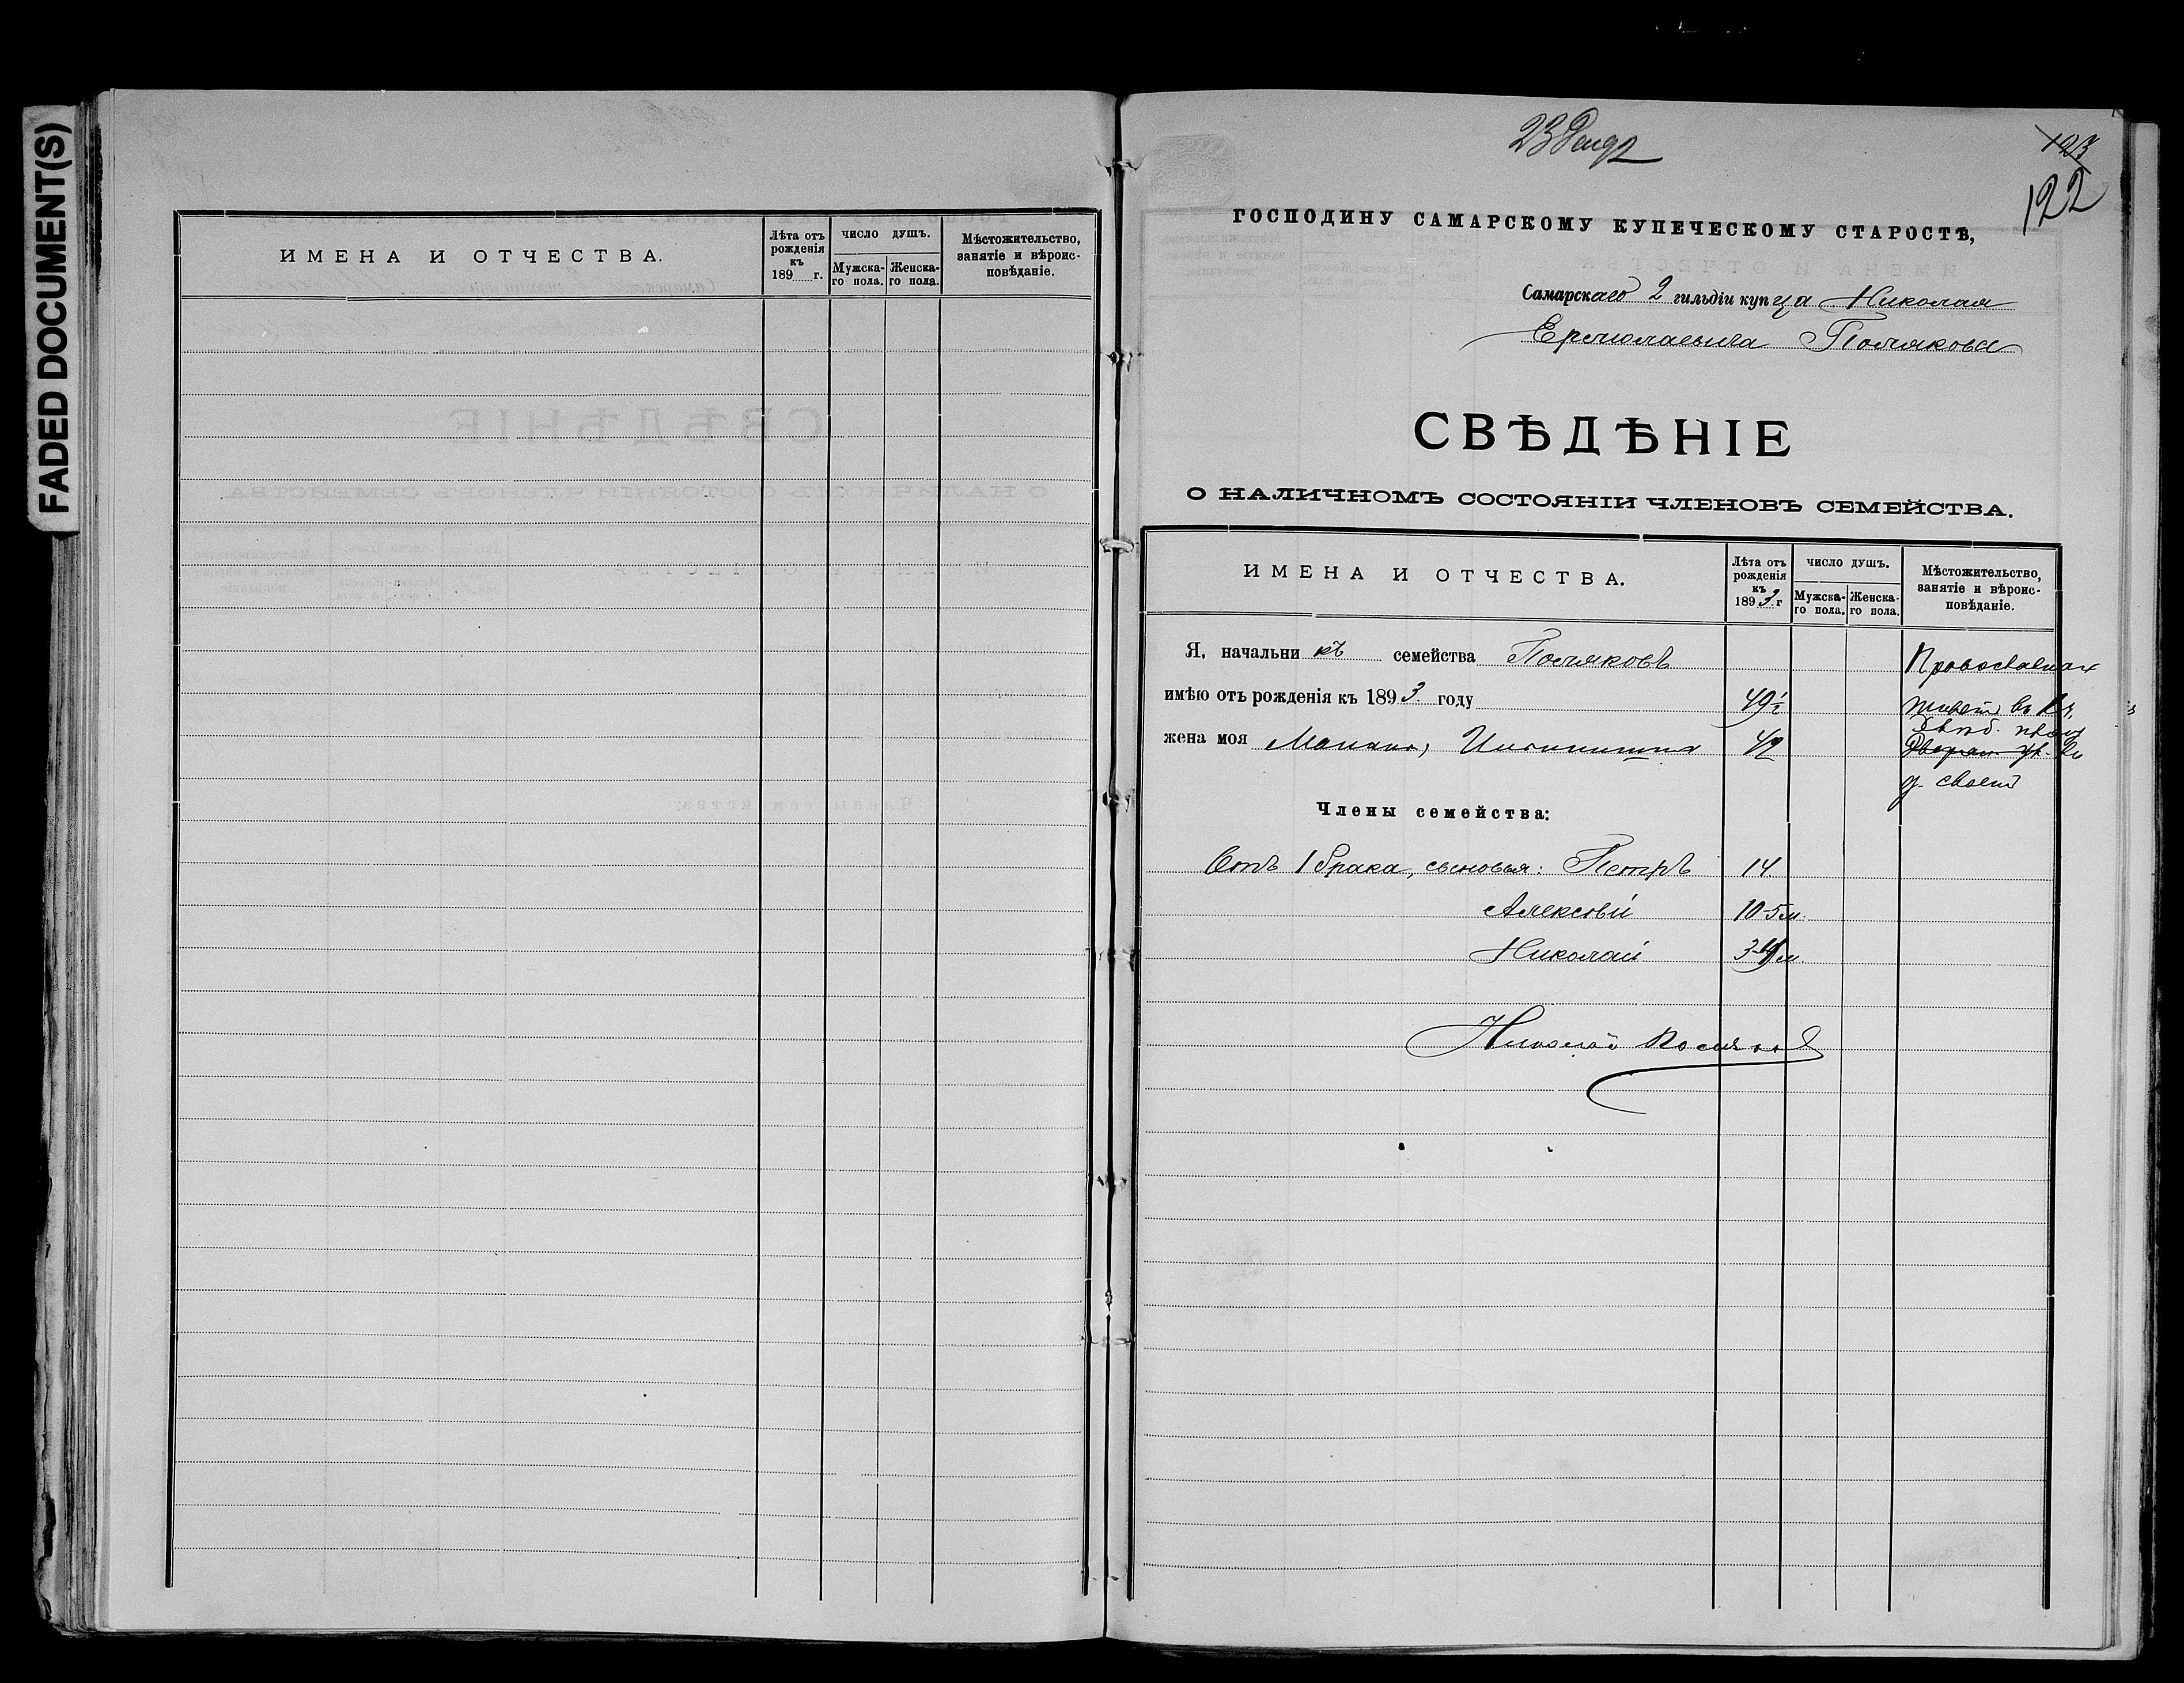 FADED DOCUMENT(S)
ИМЕНА И ОТЧЕСТВА.
Лѣта отъ рожденія къ 189 г.
ЧИСЛО ДУШЪ.
Мужска-го пола.
Женска-го пола.
Мѣстожительство, занятіе и вѣроис-повѣданіе.
23
123
122
ГОСПОДИНУ САМАРСКОМУ КУПЕЧЕСКОМУ СТАРОСТѢ,
Самарскаго 2 гильдіи купца Николая
Ермолаевича Полякова
СВѢДѢНІЕ
О НАЛИЧНОМЪ СОСТОЯНІИ ЧЛЕНОВЪ СЕМЕЙСТВА.
ИМЕНА И ОТЧЕСТВА.
Лѣта отъ рожденія къ 1893 г
ЧИСЛО ДУШЪ.
Мужска-го пола.
Женска-го пола.
Мѣстожительство, занятіе и вѣроис-повѣданіе.
Я, начальникъ семейства Поляковъ
имѣю отъ рожденія къ 1893 году 49½
жена моя
д. своемъ
Члены семейства:
Отъ 1 брака, сыновья: Петръ 14
Алексѣй 10-5 м.
Николай
Николай Поляковъ